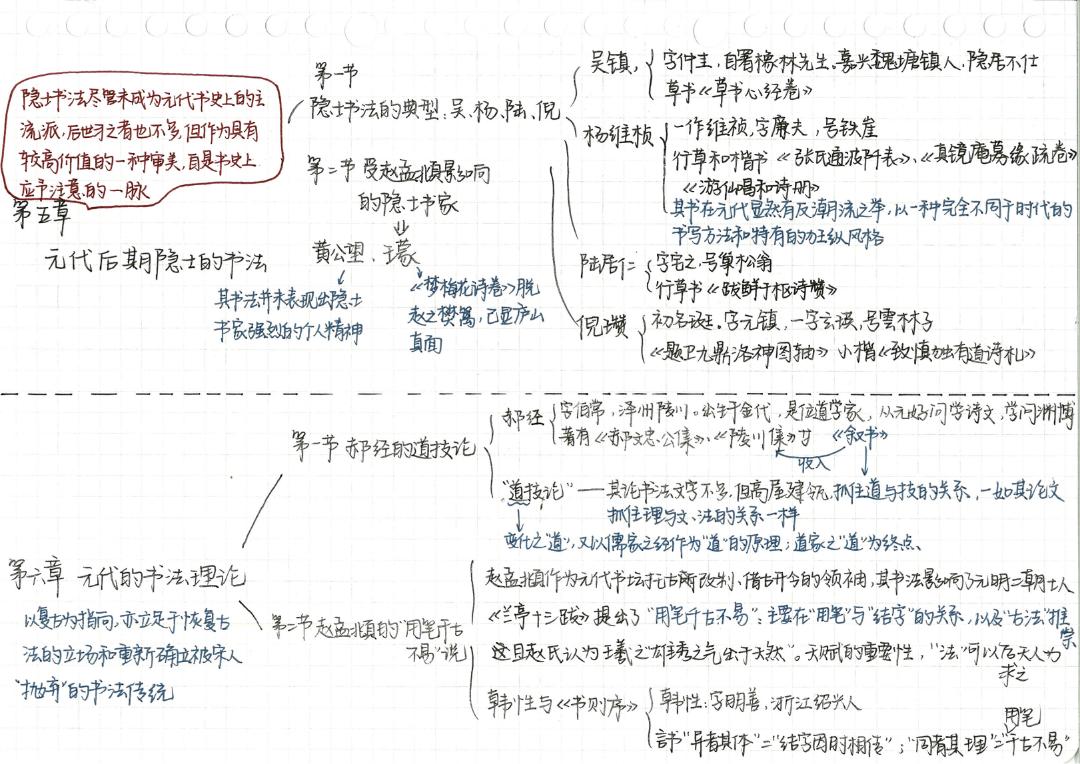 隐士书法尽管未成为元代书史上的主
流派,后世习之者也不多,但作为具有
较高价值的一种审美,自是书史上
应予注意的一脉
第五章
元代后期隐士的书法
第一节
隐士书法的典型:吴、杨、陆、倪
第二节 受赵孟頫影响
的隐士书家
黄公望、王蒙
其书法并未表现出隐士
书家强烈的个人精神
《梦梅花诗卷》脱
赵之樊篱,已显庐山
真面
吴镇,
字仲圭,自署橡林先生。嘉兴魏塘镇人,隐居不仕
草书《草书心经卷》
杨维桢
一作维祯,字廉夫,号铁崖
行草和楷书《张氏通波阡表》、《真镜庵募缘疏卷》
《游仙唱和诗册》
其书在元代显然有反潮流之举,以一种完全不同于时代的
书写方法和特有的狂纵风格
陆居仁
字宅之,号巢松翁
行草书《跋鲜于枢诗赞》
倪瓒
初名珽。字元镇,一字玄瑛,号雲林子
《题卫九鼎洛神图轴》小楷《致慎独有道诗札》
第六章 元代的书法理论
以复古为指向,亦立足于恢复古
法的立场和重新确立被宋人
"抛弃"的书法传统
第一节 郝经的道技论
郝经
字伯常,泽州陵川。出生于金代,是位道学家,从元好问学诗文,学问渊博
著有《郝文忠公集》、《陵川集》廿 《叙书》
收入
"道技论"——其论书法文字不多,但高屋建瓴,抓住道与技的关系,一如其论文
抓住理与文、法的关系一样
变化之"道",又以儒家之经作为"道"的原理;道家之"道"为终点。
第二节赵孟頫的"用笔千古
不易"说
赵孟頫作为元代书坛托古改制、借古开今的领袖,其书法影响了元明二朝士人
《兰亭十三跋》提出了"用笔千古不易":主要在"用笔"与"结字"的关系,以及"古法"推
崇
这且赵氏认为王羲之"雄秀之气出于天然"。天赋的重要性,"法"可以后天人为
求之
韩性与《书则序》
韩性:字明善,浙江绍兴人
言书"异者其体"="结字因时相传";"同者其理"="千古不易"
用笔